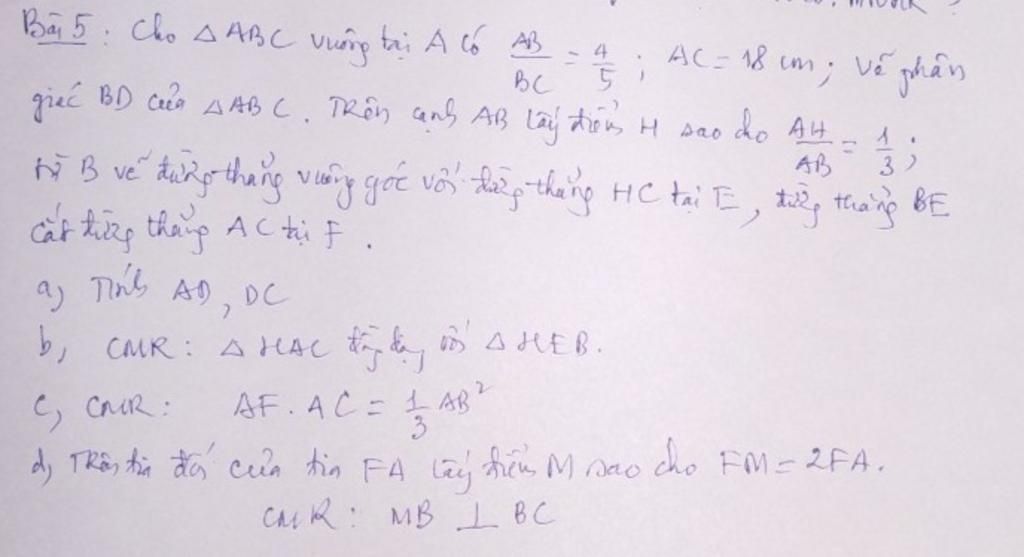 Bài 5: Cho △ABC vuông tại A có AB/BC = 4/5; AC = 18 cm; Vẽ phân
giác BD của △ABC. Trên cạnh AB lấy điểm H sao cho AH/AB = 1/3;
từ B vẽ đường thẳng vuông góc với đường thẳng HC tại E, đường thẳng BE
cắt đường thẳng AC tại F.
a, Tính AD, DC
b, CMR: △HAC đồng dạng với △HEB.
c, CMR: AF.AC = 1/3 AB²
d, Trên tia đối của tia FA lấy điểm M sao cho FM = 2FA.
CMR: MB ⊥ BC